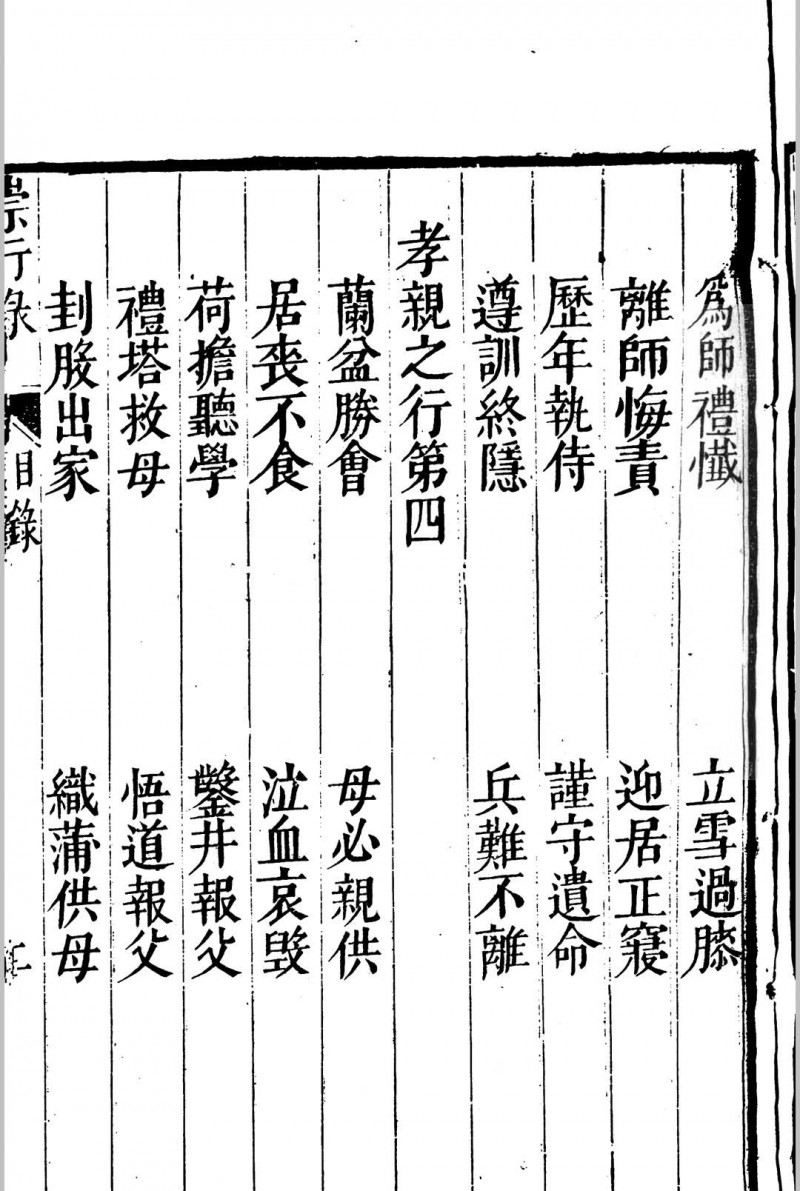 為師禮懺　立雪過膝
離師悔責　迎居正寢
歷年執侍　謹守遺命
遵訓終隱　兵難不離
孝親之行第四
蘭盆勝會　母必親供
居喪不食　泣血哀毀
荷擔聽學　鑿井報父
禮塔救母　悟道報父
刲股出家　織蒲供母
崇行錄　目錄